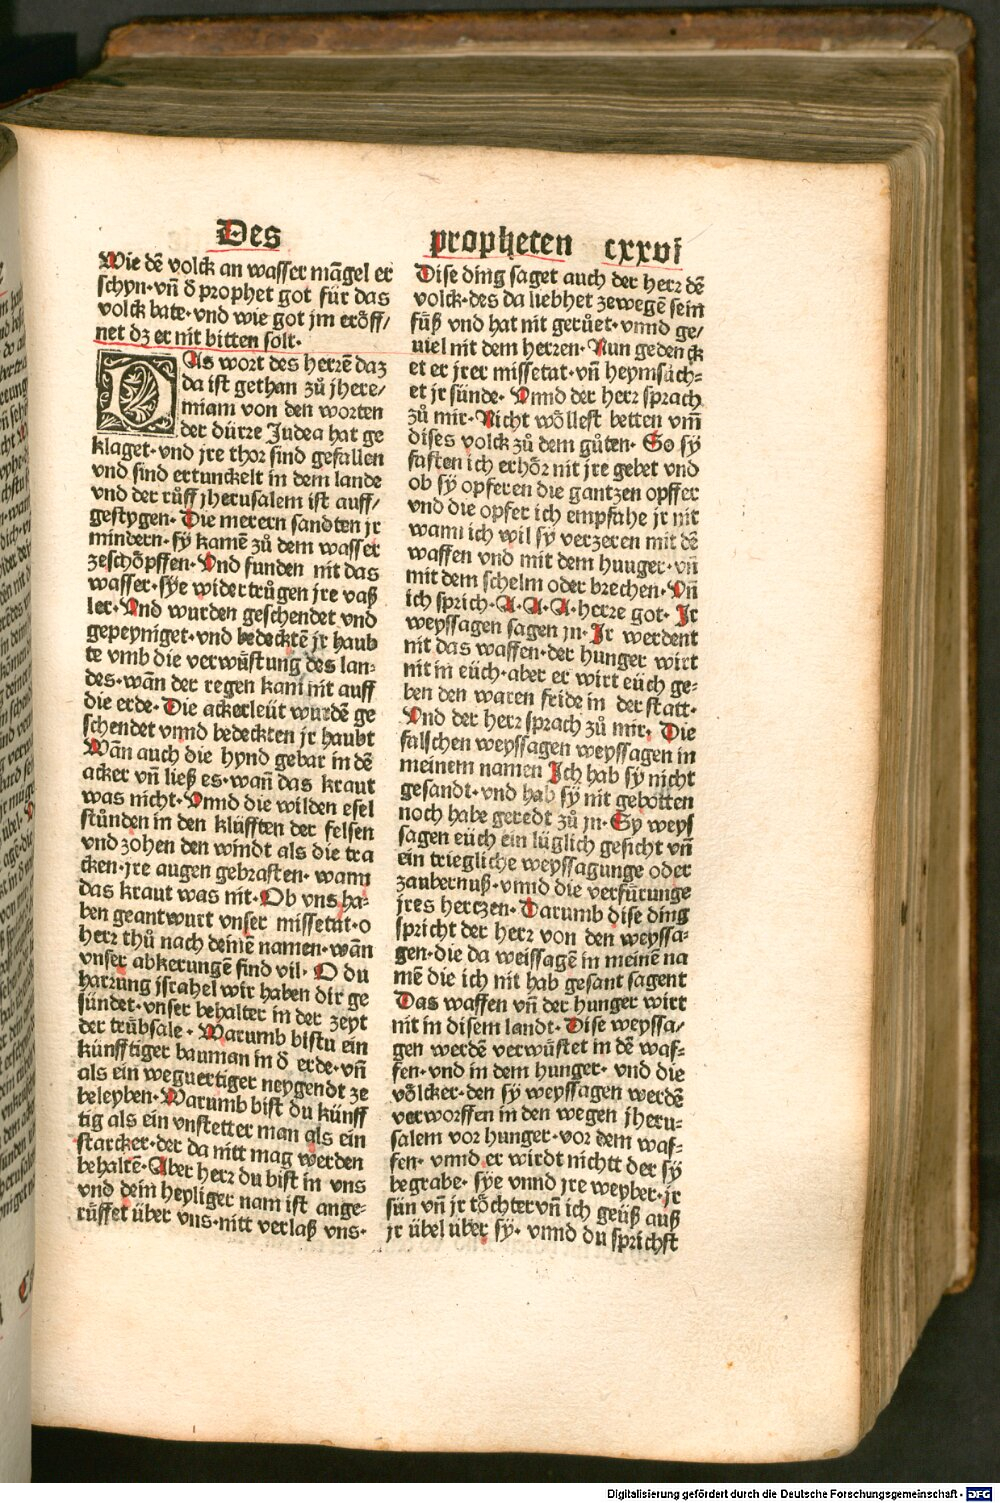 Des
propheten cxxvi
Wie dē volck an wasser mãgel er
schyn·vñ ð prophet got für das
volck bate·vnd wie got jm eröff/
net dz er nit bitten solt·
DAs wort des herrē daz
da ist gethan zů jhere/
miam von den worten
der dürre Judea hat ge
klaget·vnd jre thor sind gefallen
vnd sind ertunckelt in dem lande
vnd der růff jherusalem ist auff/
gestygen· Die merern sandten jr
mindern·sy kamē zů dem wasser
zeschöpffen·Vnd funden nit das
wasser·sye widertrůgen jre vaß
ler·Vnd wurden geschendet vnd
gepeyniget·vnd bedecktē jr haub
te vmb die verwüstung des lan:
des·wãn der regen kam nit auff
die erde·Die ackerleüt wurdē ge
schendet vnnd bedeckten jr haubt
Wãn auch die hynd gebar in dē
acker vñ ließ es·wañ das kraut
was nicht·Vnnd die wilden esel
stůnden in den klüfften der felsen
vnd zohen den windt als die tra
cken·jre augen gebrasten·wann
das kraut was nit·Ob vns ha:
ben geantwurt vnser missetat·o
herr thů nach deinē namen·wãn
vnser abkerungē sind vil·O du
harrung jsrahel wir haben dir ge
sündet·vnser behalter in der zeyt
der trübsale·Warumb bistu ein
künfftiger bauman in ð erde·vñ
als ein weguertiger neygendt ze
beleyben·Warumb bist du künff
tig als ein vnstetter man als ein
starcker·der da nitt mag werden
behaltē·Aber herr du bist in vns
vnd dein heyliger nam ist ange:
rüffet über vns·nitt verlaß vns·
Dise ding saget auch der herr dē
volck·des da liebhet zewegē sein
füß vnd hat nit gerůet·vnnd ge/
uiel nit dem herren·Nun gedenck
et er jrer missetat·vñ heymsůch:
et jr sünde·Vnnd der herr sprach
zů mir·Nicht wöllest betten vm̄
dises volck zů dem gůten·So sy
fasten ich erhör nit jre gebet vnd
ob sy opferen die gantzen opffer
vnd die opfer ich empfahe jr nit
wann ich wil sy verzeren mit dē
waffen vnd mit dem hunger·vñ
mit dem schelm oder brechen·Vñ
ich sprich·A·A·A·herre got·Ir
weyssagen sagen jn·Ir werdent
nit das waffen·der hunger wirt
nit in eüch·aber er wirt eüch ge:
ben den waren fride in der statt·
Vnd der herr sprach zů mir, Die
falschen weyssagen weyssagen in
meinem namen Ich hab sy nicht
gesandt·vnd hab sy nit gebotten
noch habe geredt zů jn·Sy weys
sagen eüch ein lüglich gesicht vñ
ein triegliche weyssagunge oder
zaubernuß·vnnd die verfürunge
jres hertzen·Darumb dise ding
spricht der herr von den weyssa:
gen·die da weissagē in meinē na
mē die ich nit hab gesant sagent
Das waffen vñ der hunger wirt
nit in disem landt·Dise weyssa/
gen werdē verwüstet in dē waf:
fen·vnd in dem hunger· vnd die
völcker·den sy weyssagen werdē
verworffen in den wegen jheru:
salem vor hunger·vor dem waf:
fen· vnnd er wirdt nichtt der sy
begrabe· sye vnnd jre weyber·jr
sün vñ jr töchter vñ ich geüß auß
jr übel über sy· vnnd du sprichst
Digitalisierung gefördert durch die Deutsche Forschungsgemeinschaft - DFG